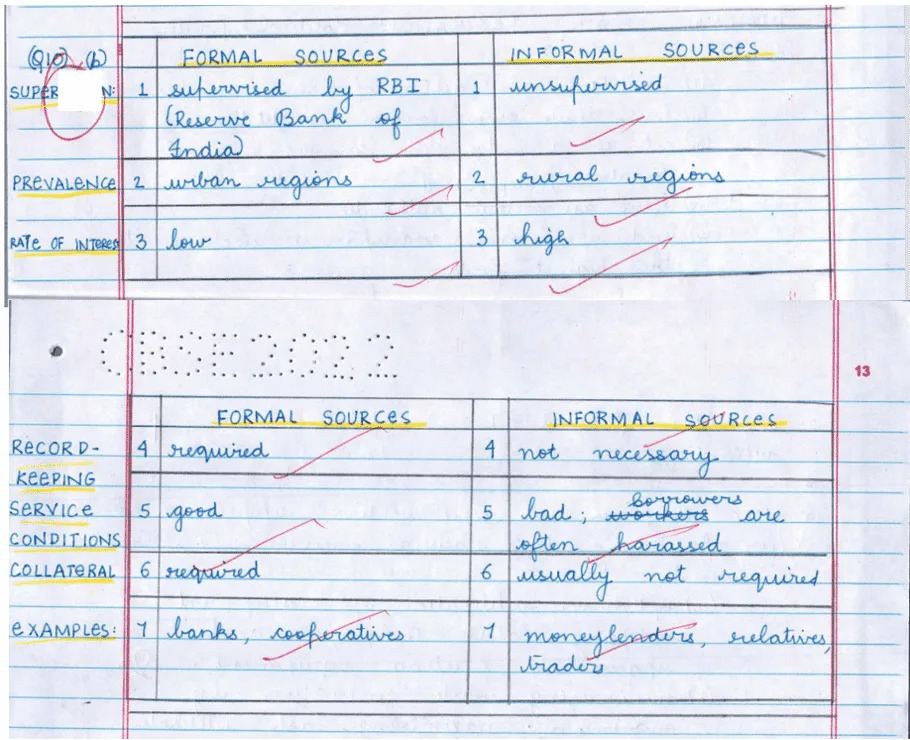 (Q10) (b)
FORMAL SOURCES
INFORMAL SOURCES
SUPER N:
1 supervised by RBI
(Reserve Bank of
India)
1 unsupervised
PREVALENCE
2 urban regions
2 rural regions
RATE OF INTEREST
3 low
3 high
CBSE2022
13
FORMAL SOURCES
INFORMAL SOURCES
RECORD-
KEEPING
4 required
4 not necessary
SERVICE
CONDITIONS
5 good
5 bad; workers borrowers are
often harassed
COLLATERAL
6 required
6 usually not required
EXAMPLES:
7 banks, cooperatives
7 moneylenders, relatives,
traders